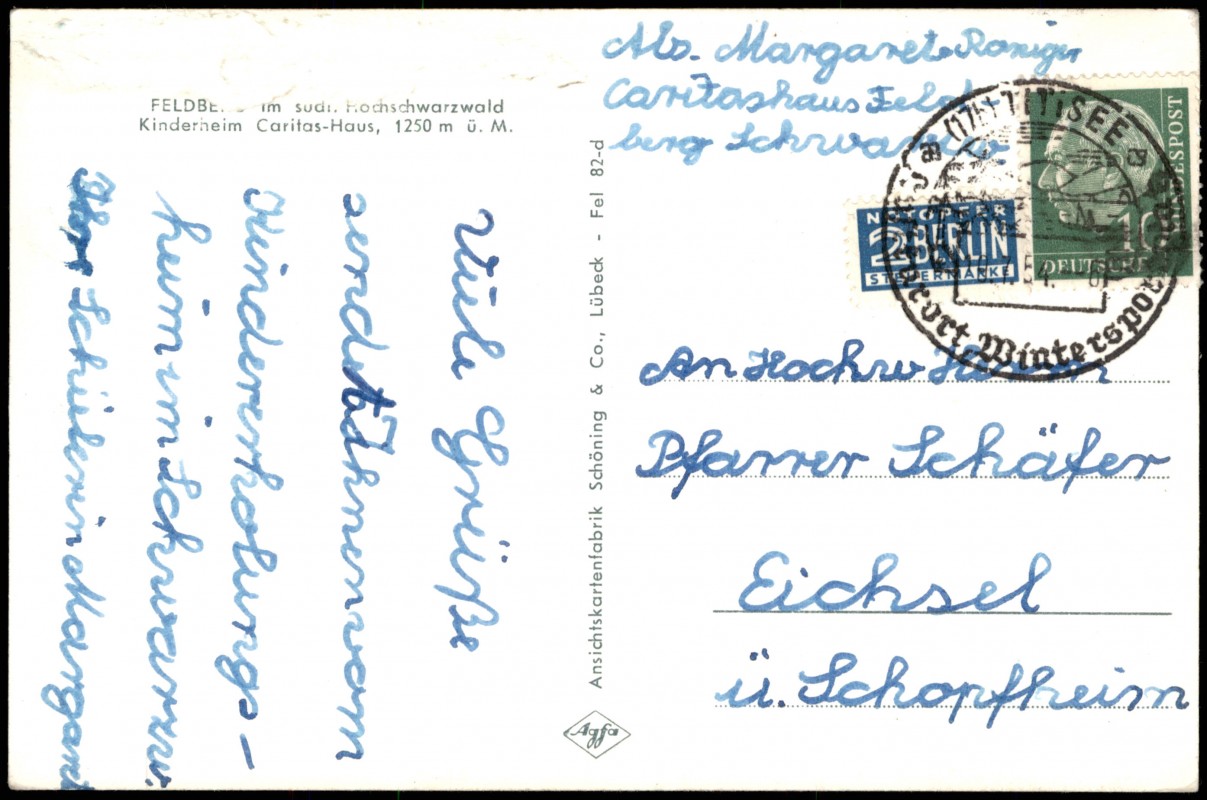 FELDBE im südl. Hochschwarzwald
Kinderheim Caritas-Haus, 1250 m ü. M.
Viele Grüße
sendet Ihnen vom
Kindererholungs-
heim im Schwarzw.
Ihre Schülerin Margaret
Ansichtskartenfabrik Schöning & Co., Lübeck - Fel 82-d
Agfa
Abs. Margaret
Caritashaus Feld
berg Schwarzw
NOTOPFER
2 BERLIN
STEUERMARKE
DEUTSCHE BUNDESPOST
10
(17b) TITISEE
.7.54
Wintersport
An Hochw Herrn
Pfarrer Schäfer
Eichsel
ü. Schopfheim